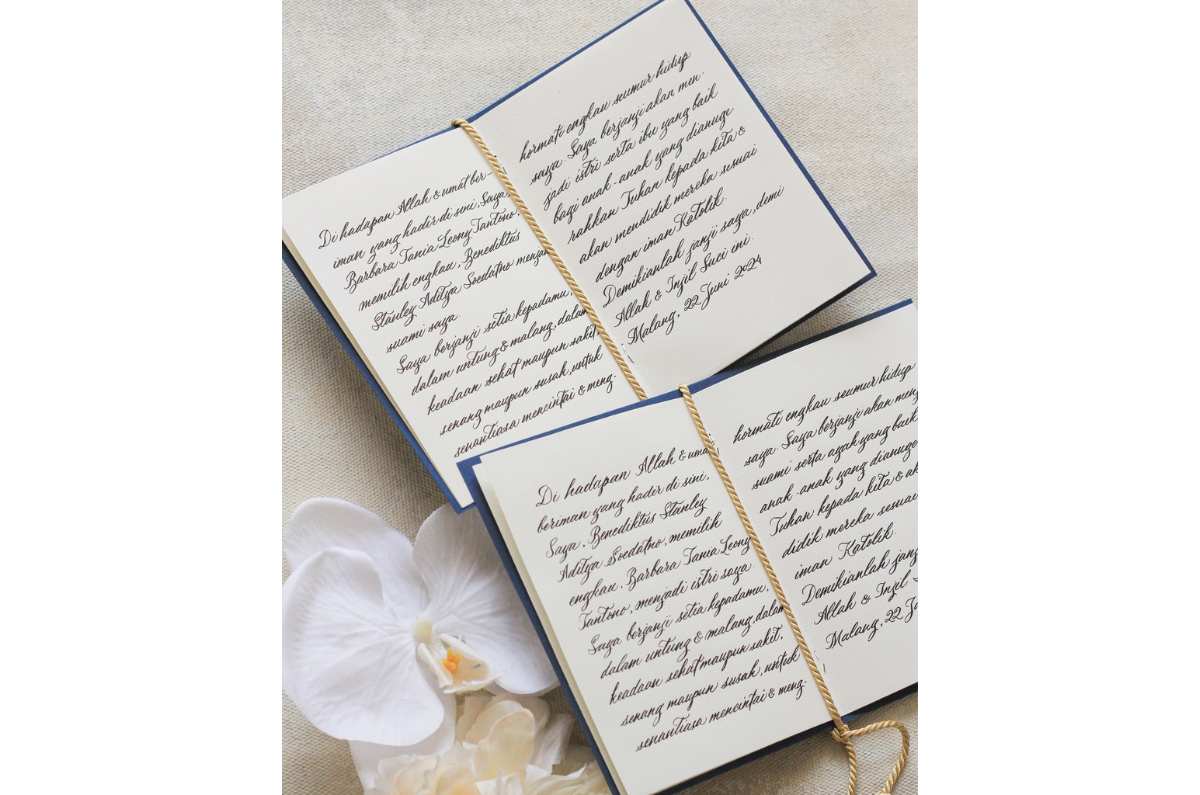 Di hadapan Allah & umat ber-
iman yang hadir di sini, Saya,
Barbara Tania Leony Tantono,
memilih engkau, Benediktus
Stanley Aditya Soedatno menjadi
suami saya.
Saya berjanji setia kepadamu,
dalam untung & malang, dalam
keadaan sehat maupun sakit,
senang maupun susah, untuk
senantiasa mencintai & meng-
hormati engkau seumur hidup
saya. Saya berjanji akan men-
jadi istri serta ibu yang baik
bagi anak-anak yang dianuge
rahkan Tuhan kepada kita &
akan mendidik mereka sesuai
dengan iman Katolik.
Demikianlah janji saya, demi
Allah & Injil Suci ini.
Malang, 22 Juni 2024
Di hadapan Allah & umat
beriman yang hadir di sini,
Saya, Benediktus Stanley
Aditya Soedatno, memilih
engkau, Barbara Tania Leony
Tantono, menjadi istri saya
Saya berjanji setia kepadamu,
dalam untung & malang, dalam
keadaan sehat maupun sakit,
senang maupun susah, untuk
senantiasa mencintai & meng-
hormati engkau seumur hidup
saya. Saya berjanji akan menj
suami serta ayah yang baik
anak-anak yang dianuge
Tuhan kepada kita & ak
didik mereka sesuai
iman Katolik.
Demikianlah janj
Allah & Injil
Malang, 22 Ju